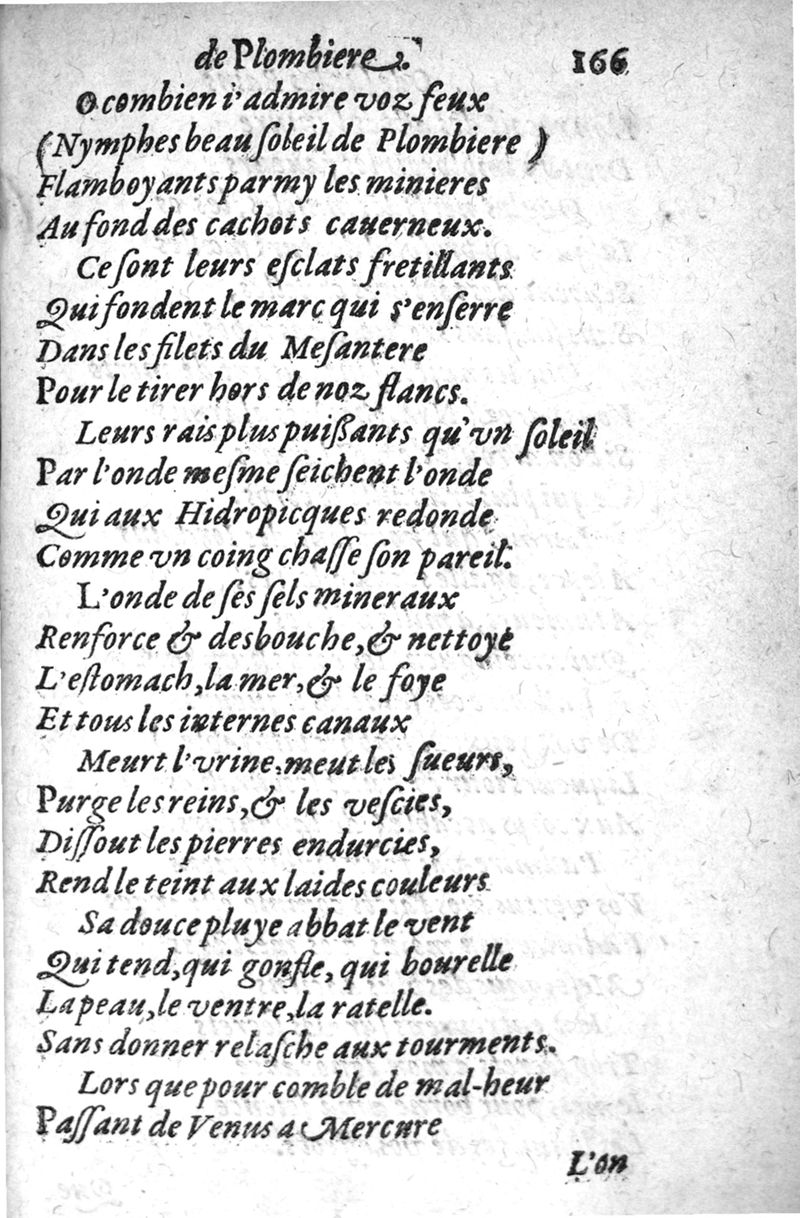 de Plombiere. 166
O combien i'admire voz feux
(Nymphes beau ſoleil de Plombiere )
Flamboyants parmy les minieres
Au fond des cachots cauerneux.
Ce ſont leurs eſclats fretillants
Qui fondent le marc qui s'enſerre
Dans les filets du Meſantere
Pour le tirer hors de noz flancs.
Leurs rais plus puiſſants qu'vn ſoleil
Par l'onde meſme ſeichent l'onde
Qui aux Hidropicques redonde
Comme vn coing chaſſe ſon pareil.
L'onde de ſes ſels mineraux
Renforce & desbouche, & nettoye
L'eſtomach, la mer, & le foye
Et tous les internes canaux
Meurt l'vrine, meut les ſueurs,
Purge les reins, & les veſcies,
Diſſout les pierres endurcies,
Rend le teint aux laides couleurs
Sa douce pluye abbat le vent
Qui tend, qui gonfle, qui bourelle
La peau, le ventre, la ratelle.
Sans donner relaſche aux tourments.
Lors que pour comble de mal-heur
Paſſant de Venus a Mercure
L'on